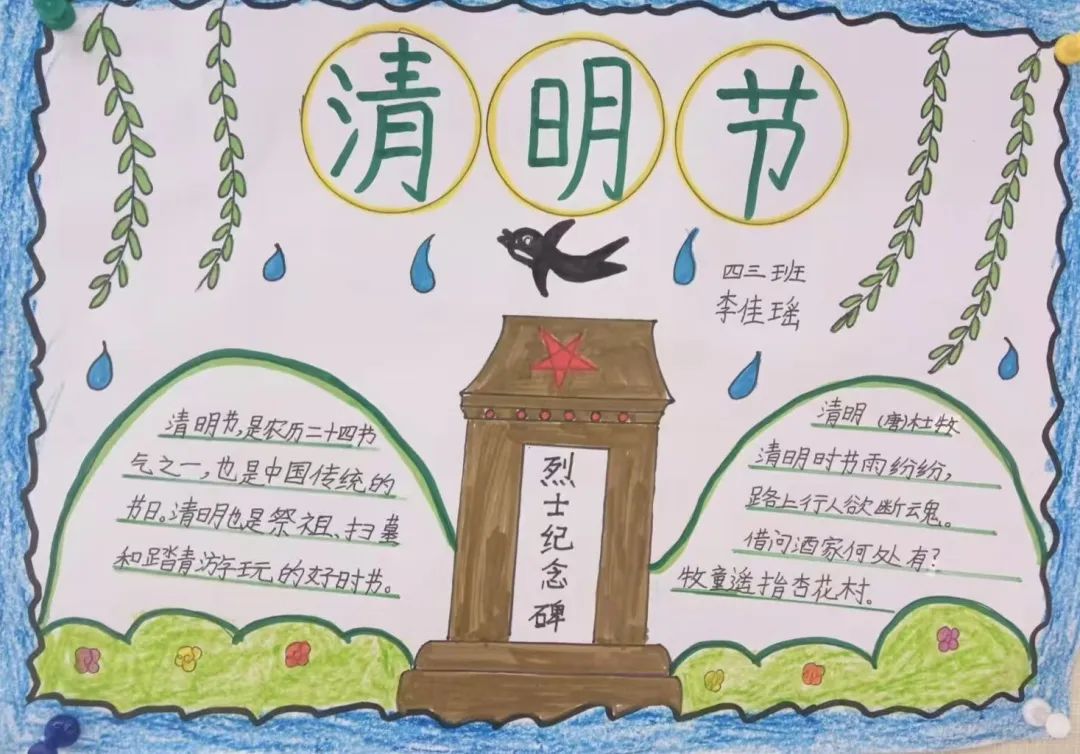 清明节
四三班
李佳瑶
清明节,是农历二十四节
气之一,也是中国传统的
节日。清明也是祭祖、扫墓
和踏青游玩的好时节。
烈士纪念碑
清明 (唐)杜牧
清明时节雨纷纷,
路上行人欲断魂。
借问酒家何处有?
牧童遥指杏花村。